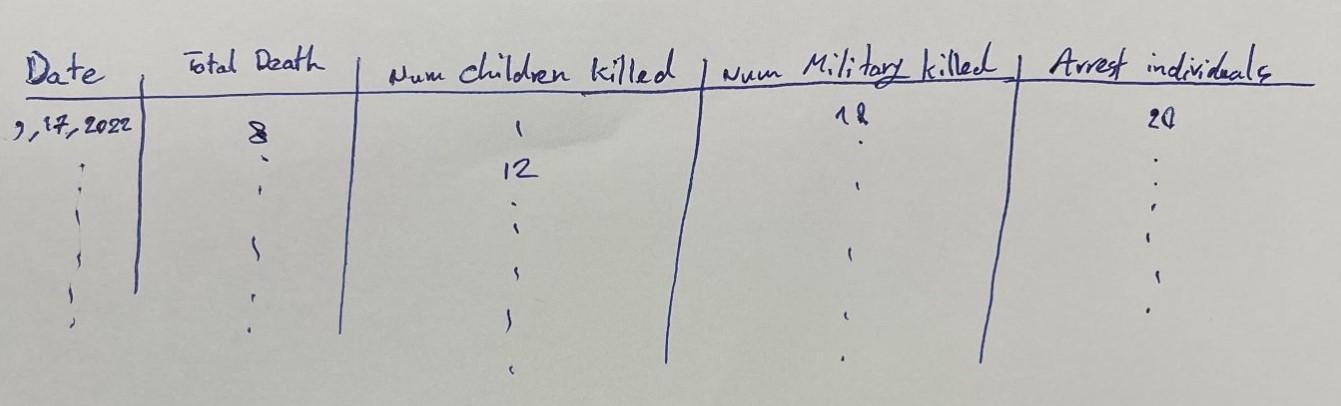 Date Total Death Num children killed Num Military killed Arrest individuals
9,17,2022 8 1 18 20
12